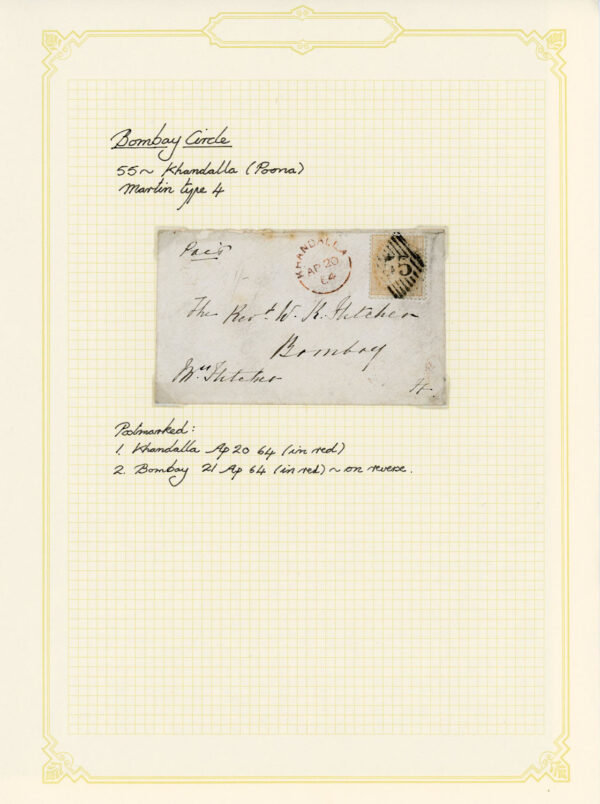 Bombay Circle
55~ Khandalla (Poona)
Martin type 4
Paid
KHANDALLA
AP 20
64
55
The Revd. W. K. Fletcher
Bombay
Mrs Fletcher
Postmarked:
1. Khandalla Ap 20 64 (in red)
2. Bombay 21 Ap 64 (in red) ~ on reverse.